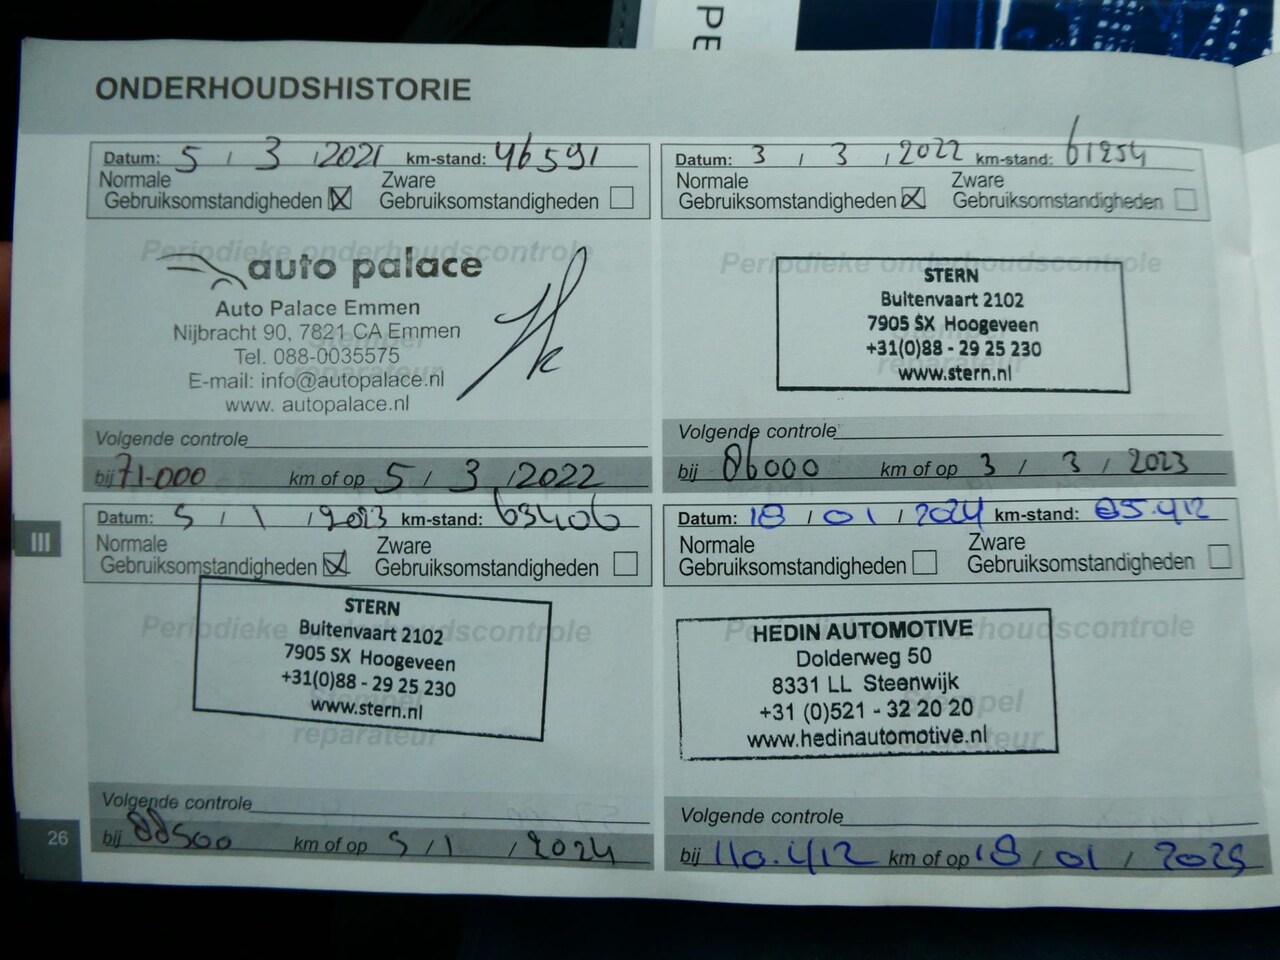 PE
ONDERHOUDSHISTORIE
Datum: 5 / 3 / 2021 km-stand: 46591
Normale Gebruiksomstandigheden ☒ Zware Gebruiksomstandigheden ☐
Periodieke onderhoudscontrole
auto palace
Auto Palace Emmen
Nijbracht 90, 7821 CA Emmen
Tel. 088-0035575
E-mail: info@autopalace.nl
www. autopalace.nl
Stempel
reparateur
Volgende controle
bij 71.000 km of op 5 / 3 / 2022
Datum: 3 / 3 / 2022 km-stand: 61254
Normale Gebruiksomstandigheden ☒ Zware Gebruiksomstandigheden ☐
Periodieke onderhoudscontrole
STERN
Buitenvaart 2102
7905 SX Hoogeveen
+31(0)88 - 29 25 230
www.stern.nl
reparateur
Volgende controle
bij 86000 km of op 3 / 3 / 2023
Datum: 5 / 1 / 2023 km-stand: 63406
Normale Gebruiksomstandigheden ☒ Zware Gebruiksomstandigheden ☐
Periodieke onderhoudscontrole
STERN
Buitenvaart 2102
7905 SX Hoogeveen
+31(0)88 - 29 25 230
www.stern.nl
Stempel
reparateur
Volgende controle
bij 88500 km of op 5 / 1 / 2024
Datum: 18 / 01 / 2024 km-stand: 85.412
Normale Gebruiksomstandigheden ☐ Zware Gebruiksomstandigheden ☐
Periodieke onderhoudscontrole
HEDIN AUTOMOTIVE
Dolderweg 50
8331 LL Steenwijk
+31 (0)521 - 32 20 20
www.hedinautomotive.nl
Stempel
reparateur
Volgende controle
bij 110.412 km of op 18 / 01 / 2025
III
26